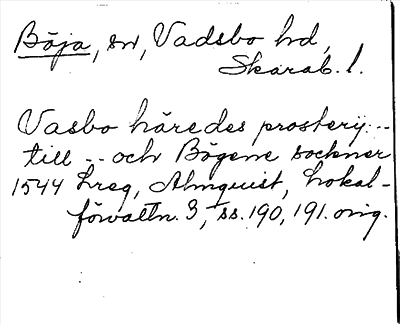 Böja, sn, Vadsbo hd,
Skarab. l.
Vasbo häredes prosterij...
till -- och Bögene sockner
1544 Lreg, Almquist, Lokal-
förvaltn. 3, ss. 190, 191. orig.